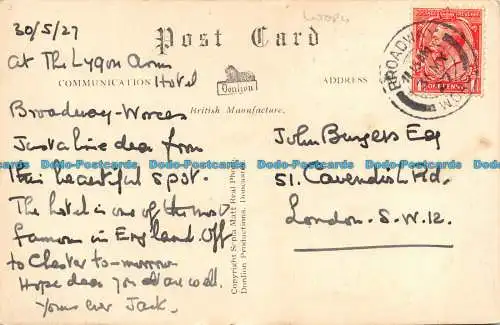 30/5/27
Worcs
Post Card
at The Lygon Arms
Hotel
COMMUNICATION
ADDRESS
Donlion
British Manufacture.
BROADWAY
WORCS
ONE PENNY
Broadway-Worcs
Just a line dear from
this beautiful spot.
The hotel is one of the most
famous in England. Off
to Chester to-morrow
Hope dear you all are well.
Yours ever Jack.
Copyright Sepia Matt Real Photo
Donlion Productions, Doncaster
John Burgess Esq
51. Cavendish Rd.
London. S.W.12.
Dodo-Postcards Dodo-Postcards Dodo-Postcards Dodo-Postcards Dodo-Postcards